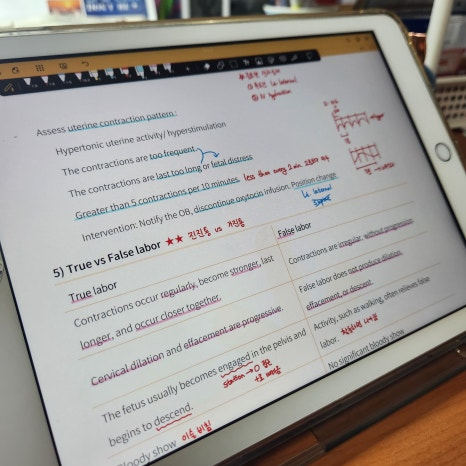 Assess uterine contraction pattern:
Hypertonic uterine activity/ hyperstimulation
The contractions are too frequent
The contractions are last too long or fetal distress
Greater than 5 contractions per 10 minutes. less than every 2 min
Intervention: Notify the OB, discontinue oxytocin infusion. Position change
La lateral
5) True vs False labor ★★ 진진통 vs 가진통
True labor
False labor
Contractions occur regularly, become stronger, last
longer, and occur closer together.
Contractions are irregular, without progression
Cervical dilation and effacement are progressive.
False labor does not produce dilation,
effacement, or descent.
The fetus usually becomes engaged in the pelvis and
begins to descend.
station → 0
Activity, such as walking, often relieves false
labor.
Bloody show 이슬 비침
No significant bloody show